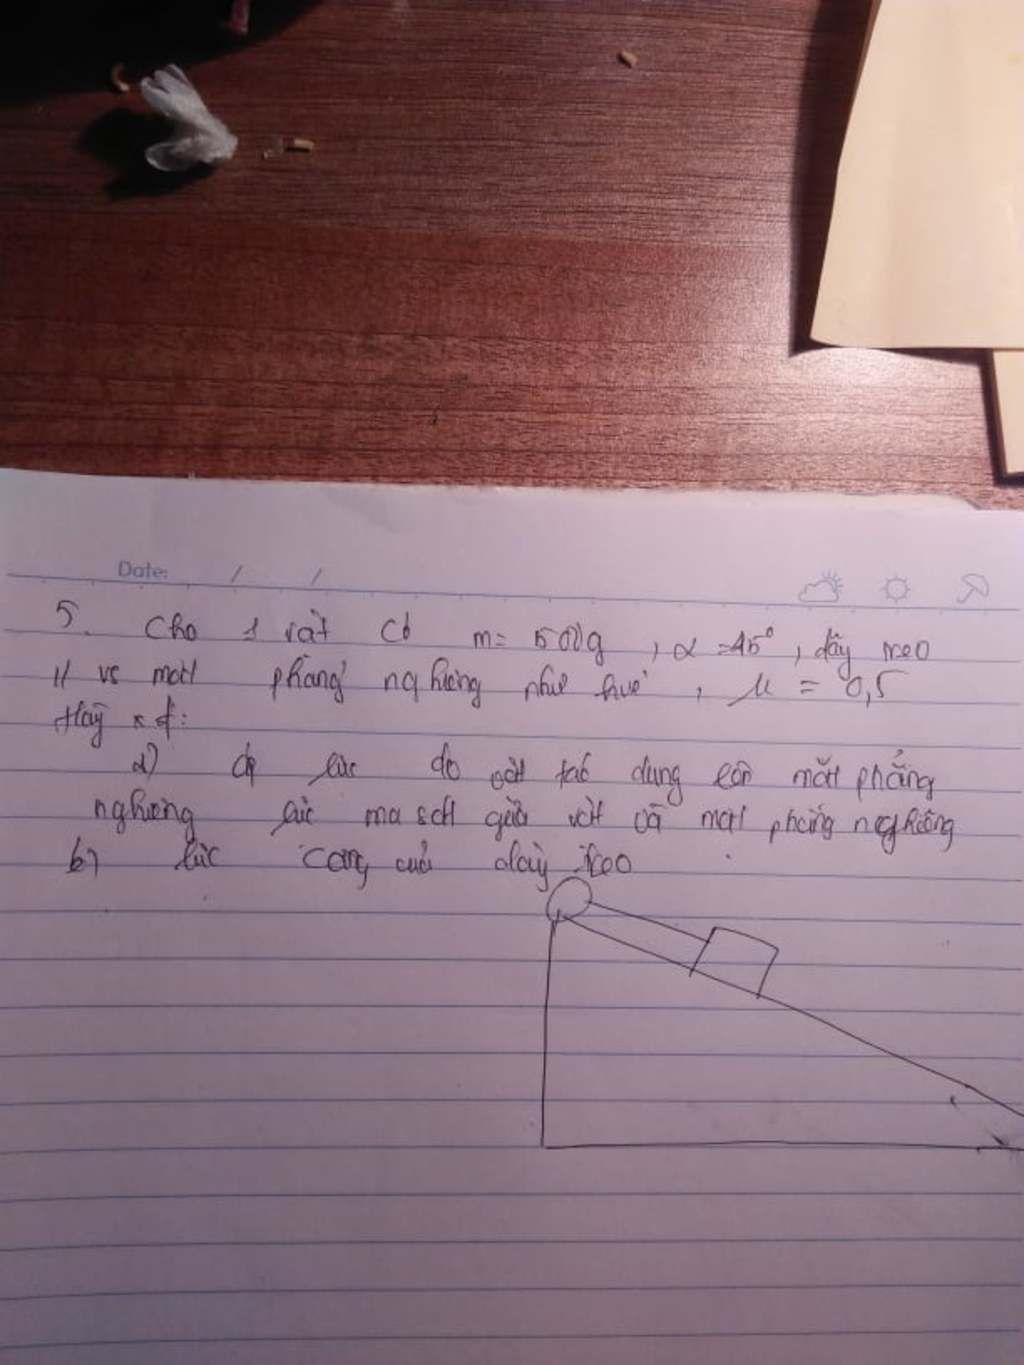 Date: / /
5. Cho 1 vật có m = 500g, α = 45°, dây treo
// vs mặt phẳng nghiêng như hvẽ, μ = 0,5
Hãy xđ:
a) áp lực do vật tác dụng lên mặt phẳng
nghiêng lực ma sát giữa vật và mặt phẳng nghiêng
b) lực căng của dây treo